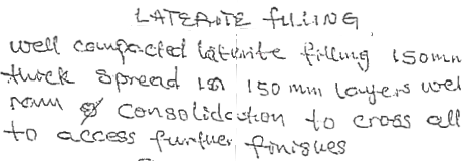 LATERITE FILLING
well compacted laterite filling 150mm
thick spread in 150 mm layers well
ramm & consolidation to cross all
to access further finishes